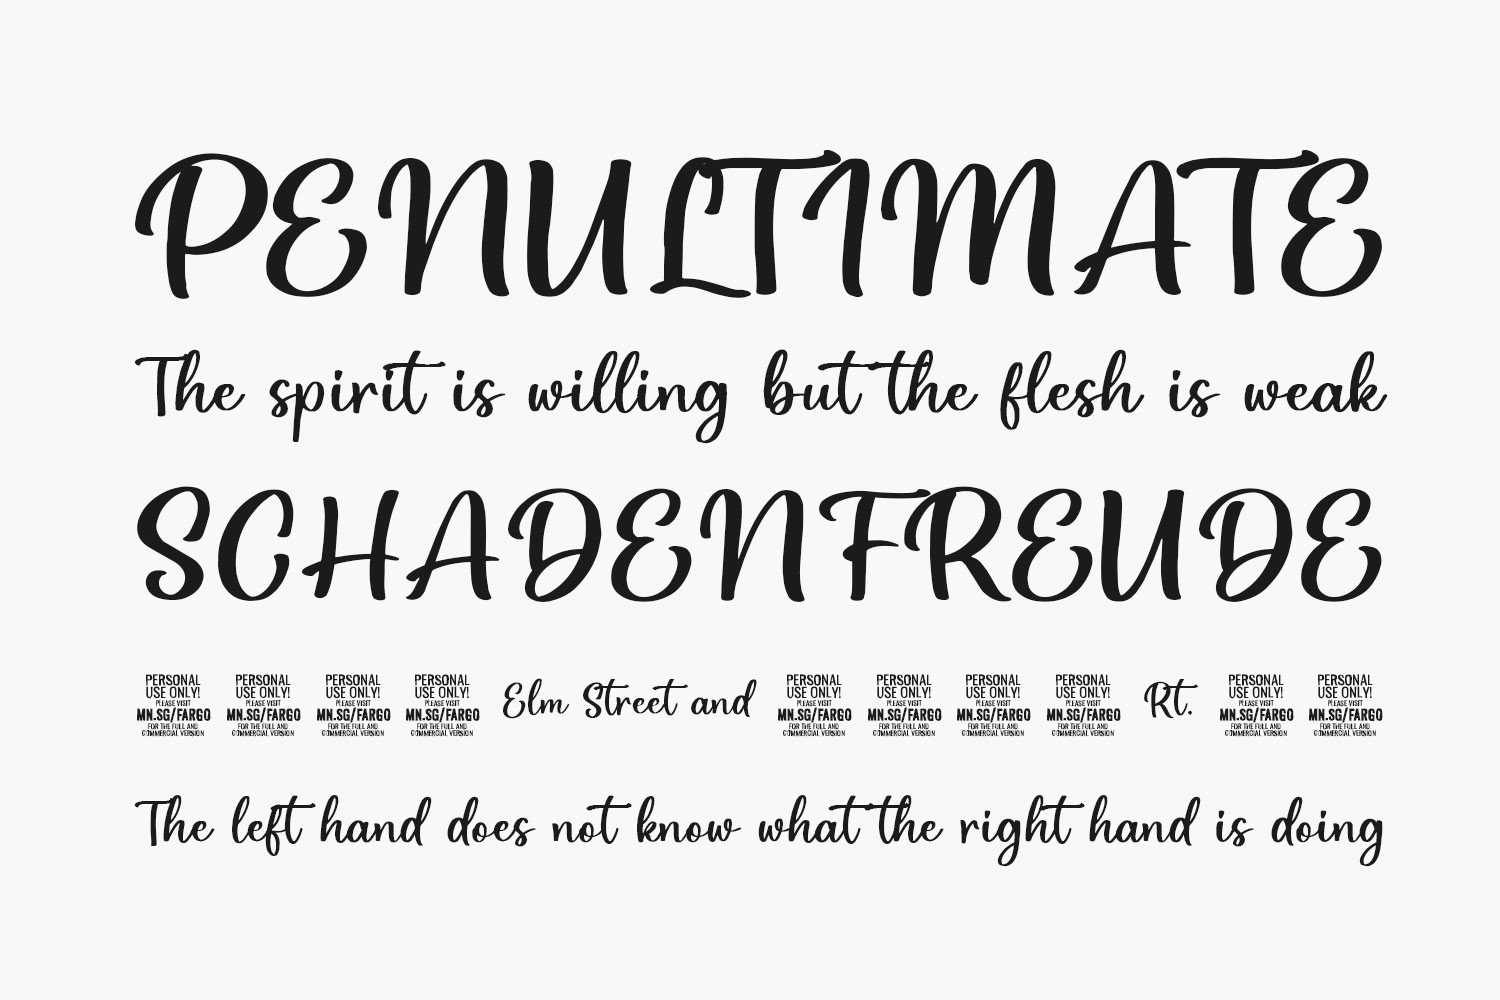 PENULTIMATE
The spirit is willing but the flesh is weak
SCHADENFREUDE
PERSONAL USE ONLY! PLEASE VISIT MN.SG/FARGO FOR THE FULL AND COMMERCIAL VERSION PERSONAL USE ONLY! PLEASE VISIT MN.SG/FARGO FOR THE FULL AND COMMERCIAL VERSION PERSONAL USE ONLY! PLEASE VISIT MN.SG/FARGO FOR THE FULL AND COMMERCIAL VERSION PERSONAL USE ONLY! PLEASE VISIT MN.SG/FARGO FOR THE FULL AND COMMERCIAL VERSION Elm Street and PERSONAL USE ONLY! PLEASE VISIT MN.SG/FARGO FOR THE FULL AND COMMERCIAL VERSION PERSONAL USE ONLY! PLEASE VISIT MN.SG/FARGO FOR THE FULL AND COMMERCIAL VERSION PERSONAL USE ONLY! PLEASE VISIT MN.SG/FARGO FOR THE FULL AND COMMERCIAL VERSION PERSONAL USE ONLY! PLEASE VISIT MN.SG/FARGO FOR THE FULL AND COMMERCIAL VERSION Rt. PERSONAL USE ONLY! PLEASE VISIT MN.SG/FARGO FOR THE FULL AND COMMERCIAL VERSION PERSONAL USE ONLY! PLEASE VISIT MN.SG/FARGO FOR THE FULL AND COMMERCIAL VERSION
The left hand does not know what the right hand is doing